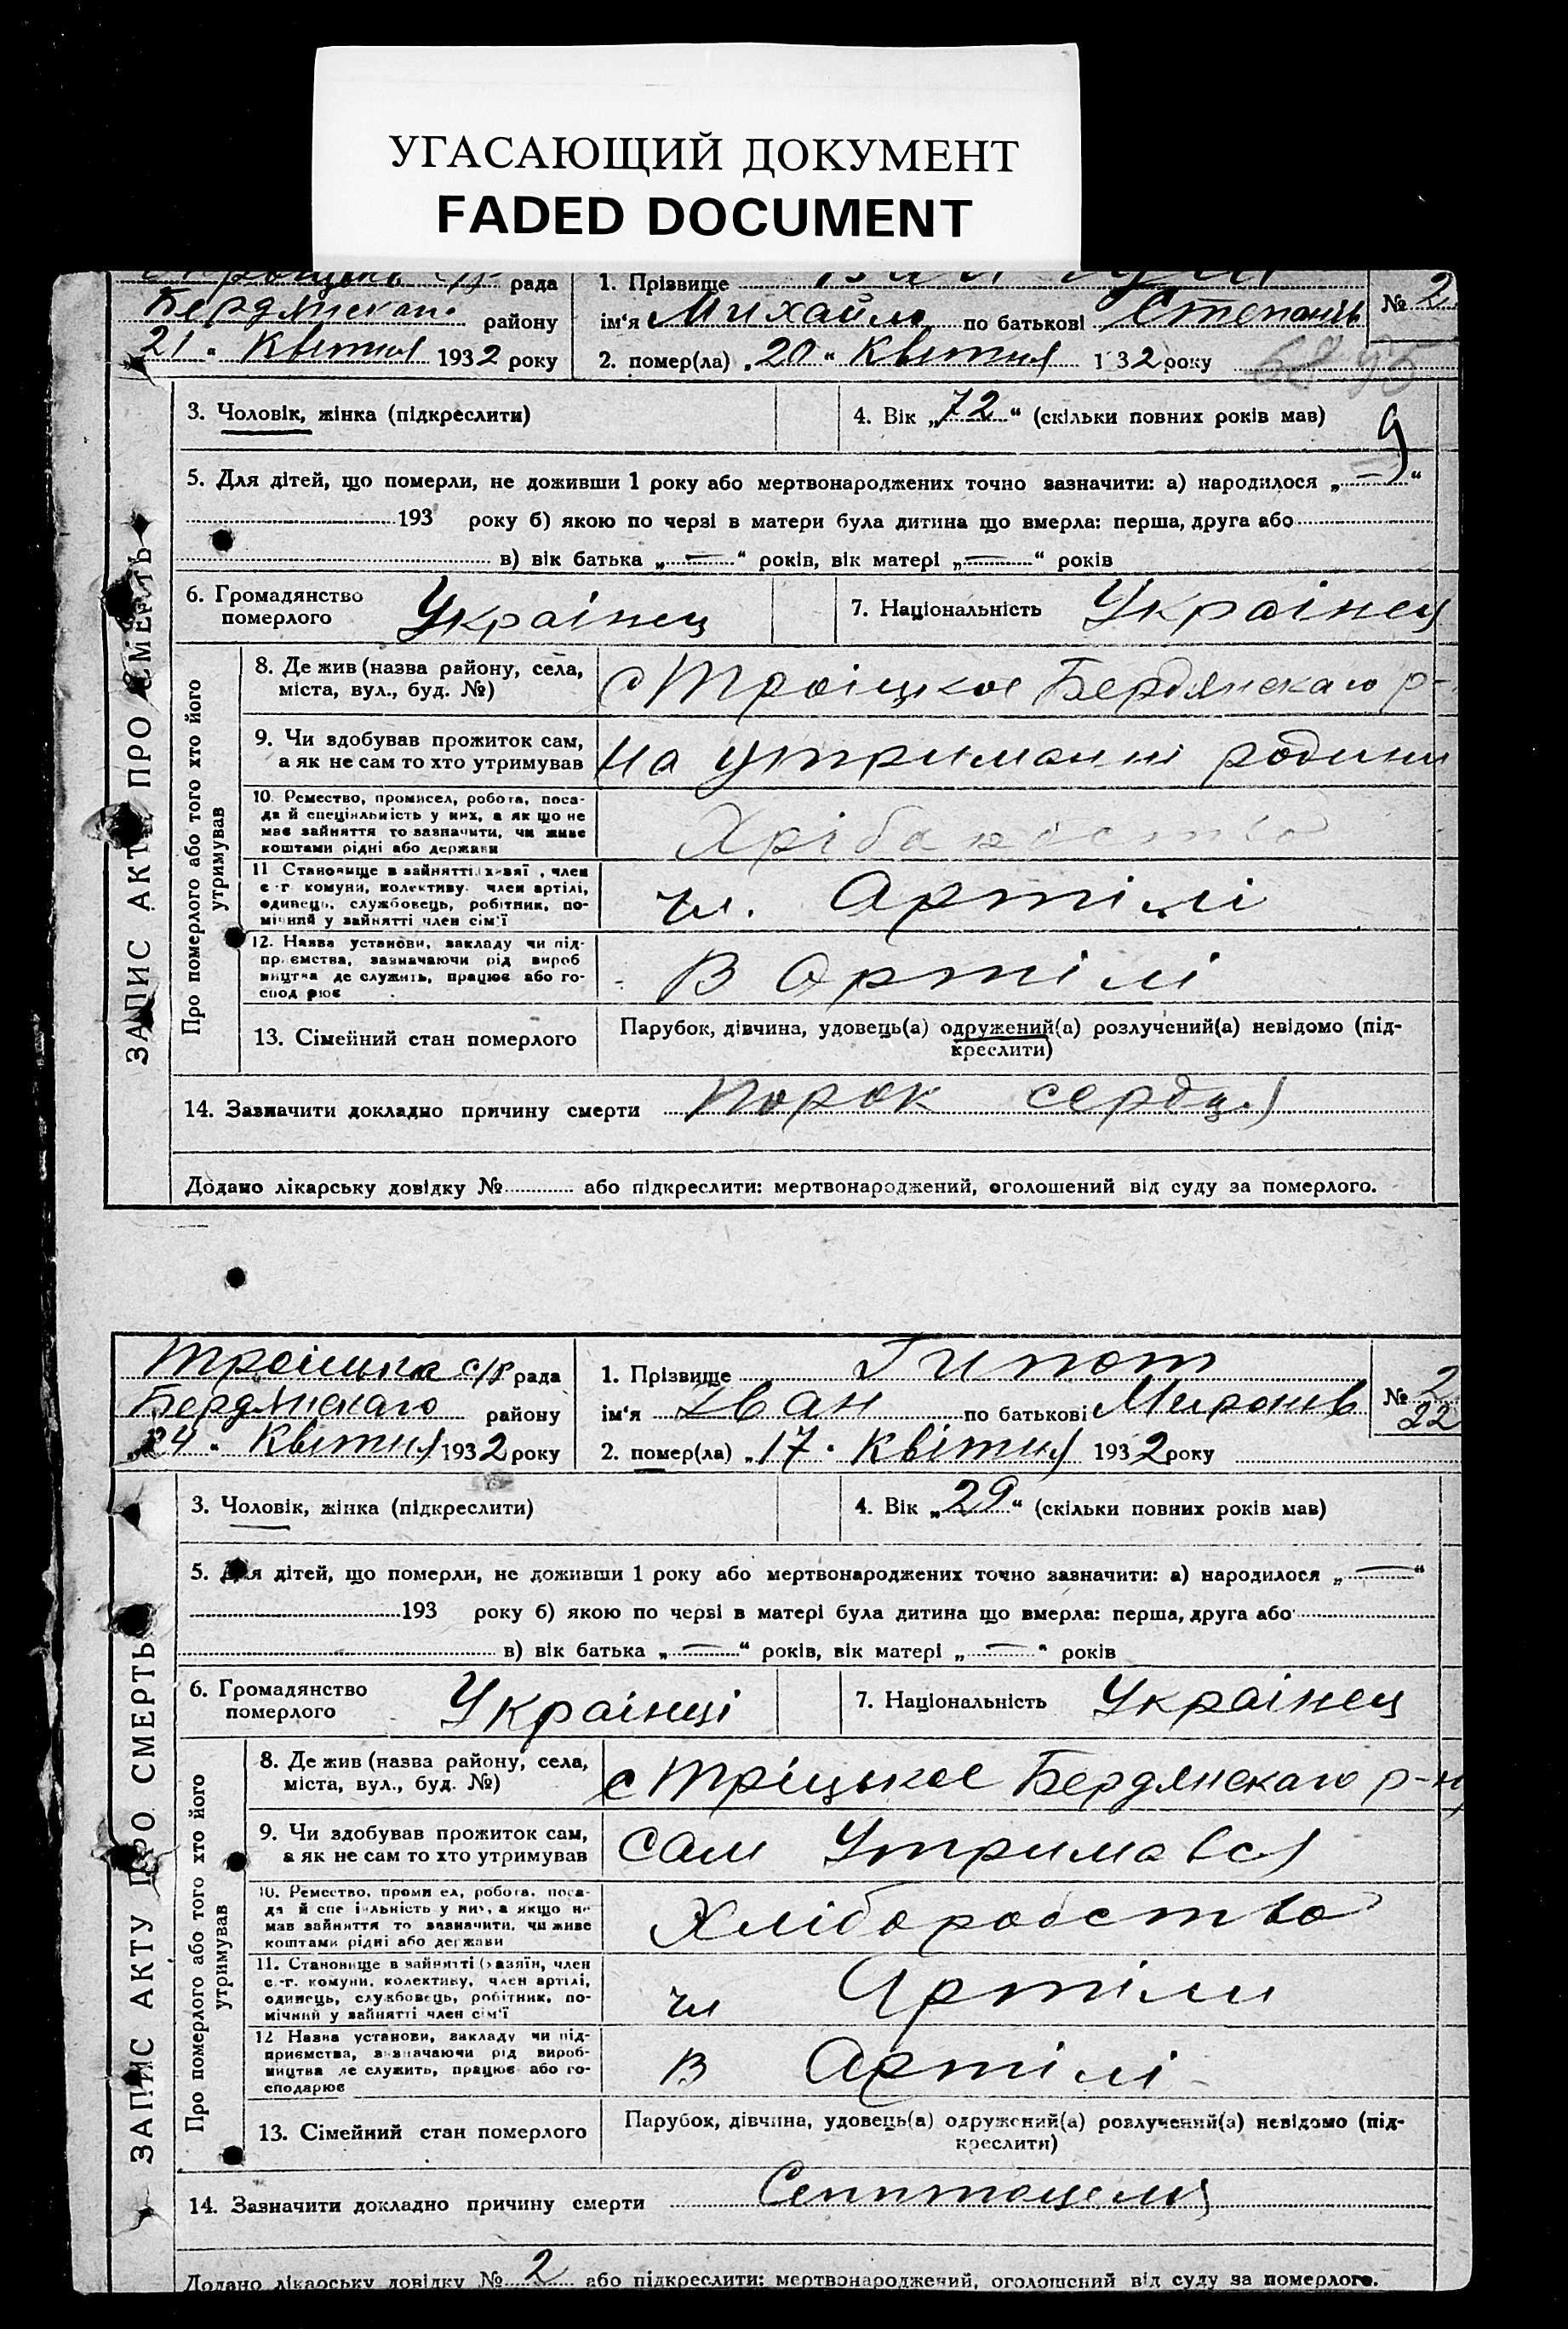 УГАСАЮЩИЙ ДОКУМЕНТ
FADED DOCUMENT
рада
1. Прізвище
Бердянскаго району
ім'я Михайло по батькові Степанів
№ 2
21 " Квітня 1932 року
2. помер(ла) „20" Квітня 1 32 року
ЗАПИС АКТУ ПРО СМЕРТЬ
3. Чоловік, жінка (підкреслити)
4. Вік „72" (скільки повних років мав)
9
5. Для дітей, що померли, не доживши 1 року або мертвонароджених точно зазначити: а) народилося „ — "
193 року б) якою по черзі в матери була дитина що вмерла: перша, друга або
в) вік батька „ — " років, вік матері „ — " років
6. Громадянство померлого Украінец
7. Національність Украінец
Про померлого або того хто його утримував
8. Де жив (назва району, села,
міста, вул., буд. №)
с Троіцкое Бердянскаго р-
9. Чи здобував прожиток сам,
а як не сам то хто утримував
на утриманні родини
10. Ремество, промисел, робота, поса-
да й спеціяльність у них, а як що не
має зайняття то зазначити, чи живе
коштами рідні або держави
11 Становище в зайнятті , член
с-г комуни, колективу член артілі,
одинець, службовець, робітник, по-
мічний у зайнятті член сім'ї
чл. Артілі
12. Назва установи, закладу чи під-
приємства, зазначаючи рід вироб
ництва де служить, працює або го-
спод рює
В Артілі
13. Сімейний стан померлого
Парубок, дівчина, удовець(а) одружений(а) розлучений(а) невідомо (під-
креслити)
14. Зазначити докладно причину смерти порок сердця
Додано лікарську довідку № або підкреслити: мертвонароджений, оголошений від суду за померлого.
Троіцька с/р рада
1. Прізвище Гипот
Бердянскаго району
ім'я Іван по батькові Миронів
№ 2
22
„24" Квітня 1932 року
2. помер(ла) „17" Квітня 1932 року
ЗАПИС АКТУ ПРО СМЕРТЬ
3. Чоловік, жінка (підкреслити)
4. Вік „29" (скільки повних років мав)
5. Для дітей, що померли, не доживши 1 року або мертвонароджених точно зазначити: а) народилося „ — "
193 року б) якою по черзі в матері була дитина що вмерла: перша, друга або
в) вік батька „ — " років, вік матері „ — " років
6. Громадянство померлого Украінці
7. Національність Украінец
Про померлого або того хто його утримував
8. Де жив (назва району, села,
міста, вул., буд. №)
с Тріцькое Бердянскаго р-н
9. Чи здобував прожиток сам,
а як не сам то хто утримував
сам Утримався
10. Ремество, проми ел, робота, поса-
да й спе іяльність у них, а якщо не
мав зайняття то зазначити, чи живе
коштами рідні або держави
Хліборобство
11. Становище в зайнятті (хазяїн, член
с.-г. комуни, колективу, член артілі,
одинець, службовець, робітник, по-
мічний у зайнятті член сім'ї
чл Артіли
12 Назва установи, закладу чи під-
приємства, зазначаючи рід вироб-
ництва де служить, працює або го-
сподарює
В Артілі
13. Сімейний стан померлого
Парубок, дівчина, удовець(а) одружений(а) розлучений(а) невідомо (під-
креслити)
14. Зазначити докладно причину смерти
Додано лікарську довідку № 2 або підкреслити: мертвонароджений, оголошений від суду за померлого.